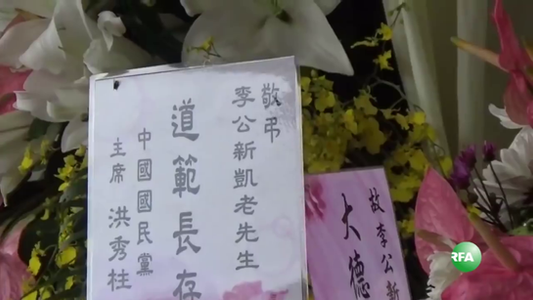 敬弔
李公新凱老先生
道範長存
中國國民黨
主席 洪秀柱
故李公新
大德
RFA